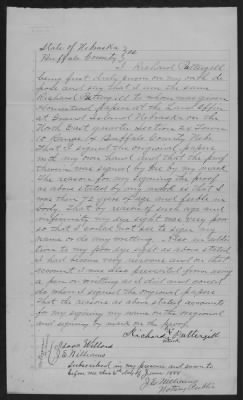 State of Nebraska } ss
Buffalo County }
I Richard Pattergill
being first duly sworn on my oath de-
pose and say that I am the same
Richard Pattergill to whom was given
Homestead Papers at the Land Office
at Grand Island Nebraska on the
North East quarter Section 24 Town
Range Buffalo County Neb.
That I signed the original papers
with my own hand and that the proof
thereon was signed by me by my mark
The reason for my signing the proof
as above stated by my mark is that I
was then 72 years of age and feeble in
body. That by reason of such age and
infirmity my eye sight was very poor
so that I could not see to sign my
name or do any writing. Also in addi-
tion to my old age as above stated
I had become very nervous and on that
account I was also prevented from using
a pen or writing as I did and could
do when I signed the original papers
That the reason as above stated accounts
for my signing my name on the original
and signing by mark on the proof.
Richard Pattergill
Willard
J. E. Williams
Subscribed in my presence and sworn to
before me this day of June 188
J. E. Williams
Notary Public